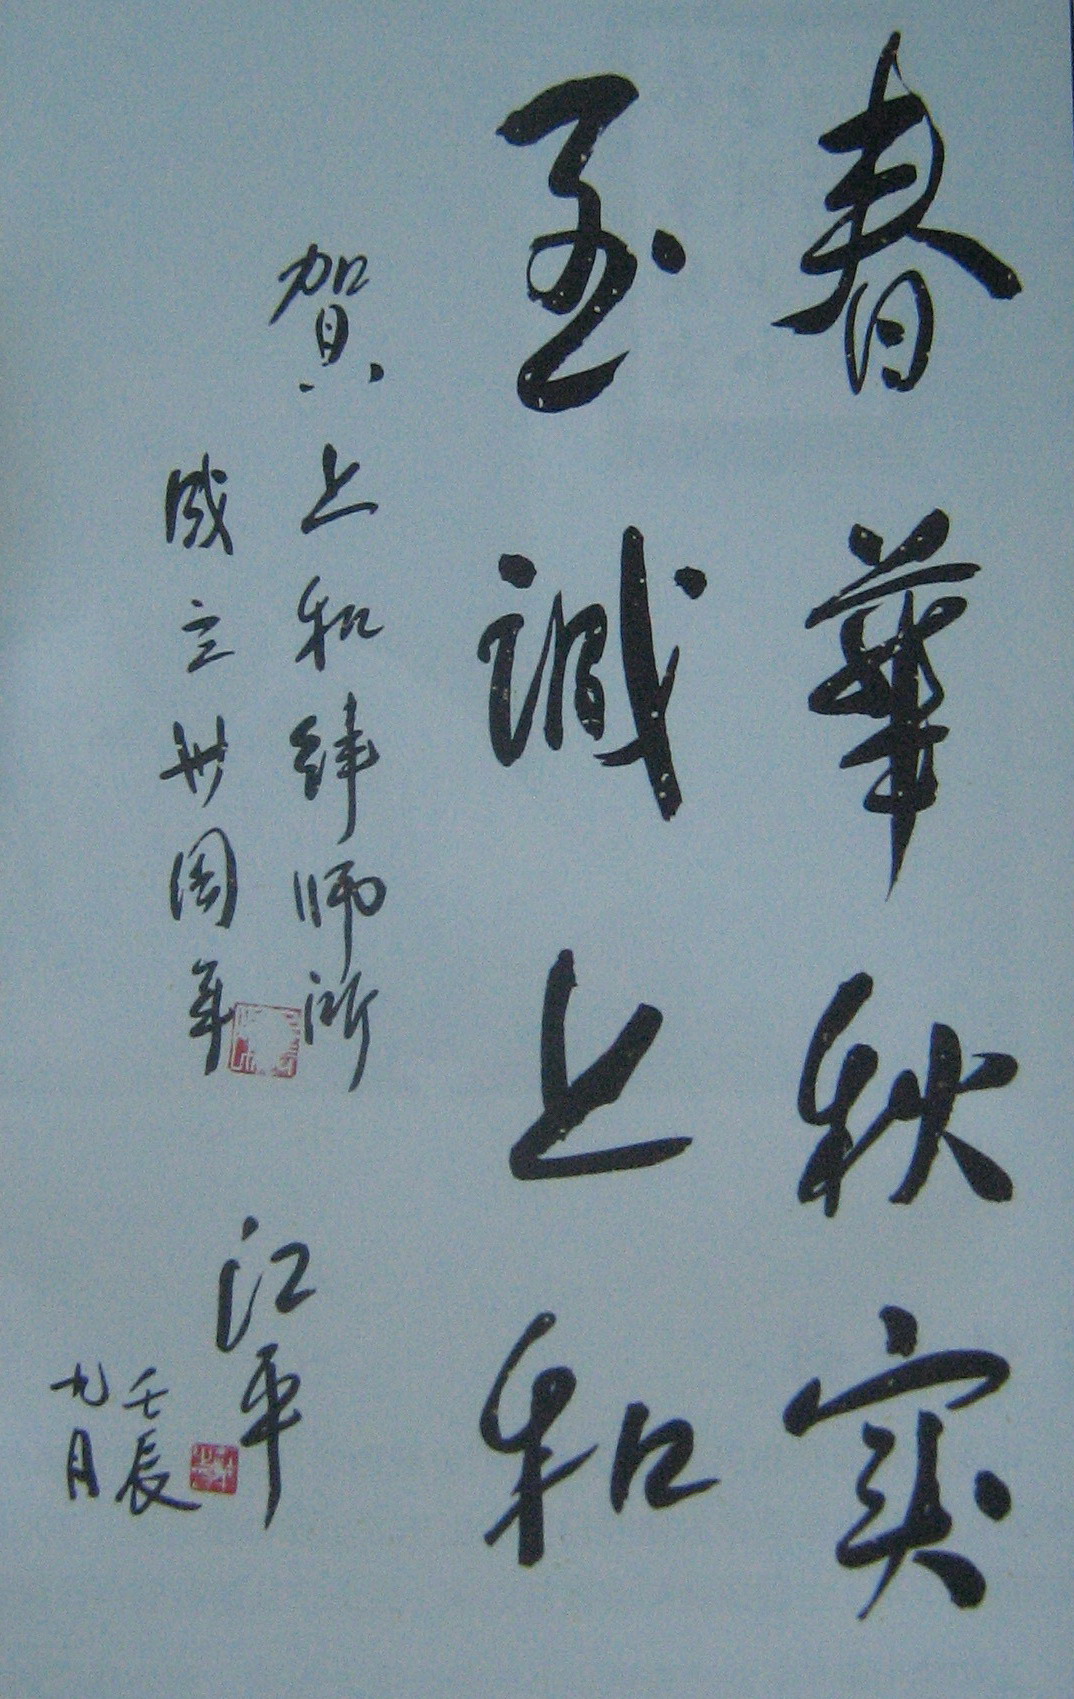 春華秋实
至誠上和
賀上和律师所
成立卅周年
江平
壬辰
九月